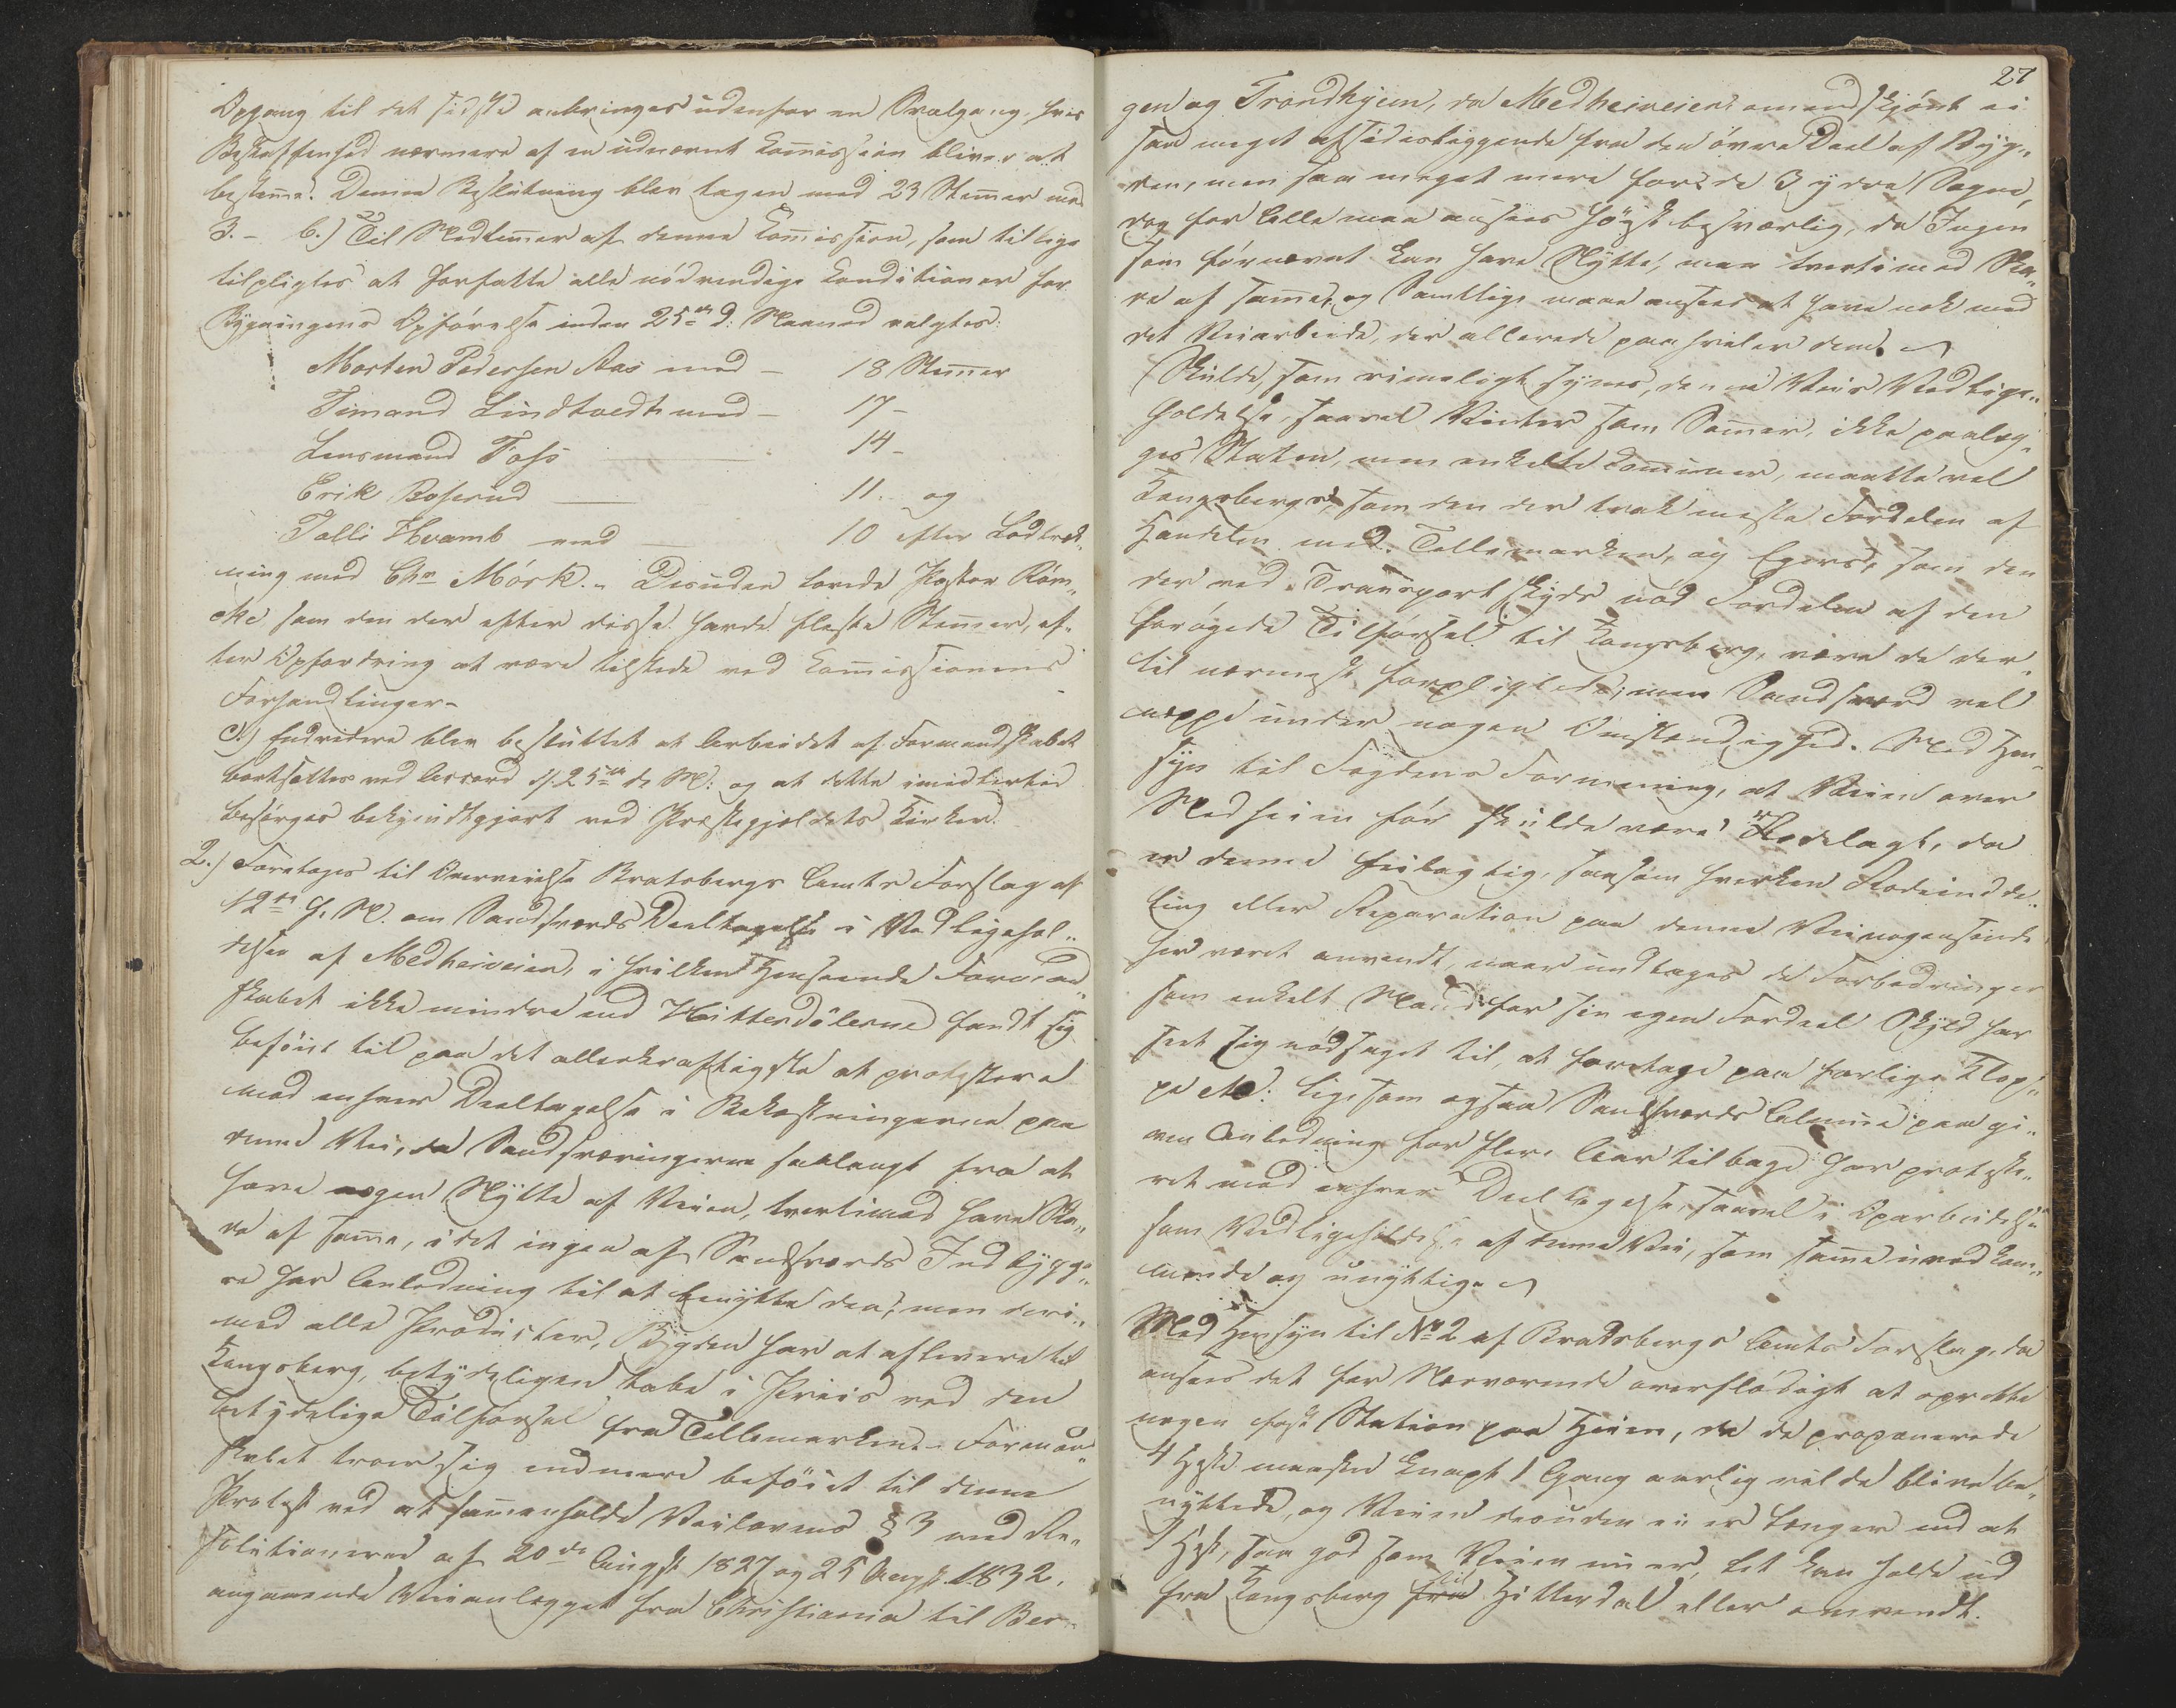 Opgang til det sidste anbringes udenfor en Svalgang, hvis
Beskaffenhed nærmere af en udnævnt Commission bliver at
bestemme. Denne Beslutning blev tagen med 23 Stemmer mod
3. - b.) Til Medlemmer af denne Commission, som tillige
tilpligtes at forfatte alle nödvendige Conditioner for
Bygningens Opförelse inden 25de d: Maaned valgtes:
Morten Pedersen Aas med - 18 Stemmer
Timand Lindtvedt med - 17 -
Lensmand Foss 14 -
Erik Boserud 11. og
Talli Hvamb med 10 efter Lodtræk„
ning med Chr Mörk. - Desuden lovede Pastor Röm„
cke som den der efter disse havde fleste Stemmer, ef„
ter Opfordring at være tilstede ved Commissionens
Forhandlinger -
c.) Endvidere blev besluttet at Arbeidet af Formandskabet
bortsættes ved Accord d. 25de d. M: og at dette imidlertid
besörges bekjendtgjort ved Præstegjeldets Kirker.
2.) Foretoges til Overveielse Bratsbergs Amts Forslag af
12te f. M. om Sandsværds Deeltagelse i Vedligehol„
delsen af Medheiveien, i hvilken Henseende Formand„
skabet ikke mindre end Hitterdölerne fandt sig
beföiet til paa det allerkraftigste at protestere
mod enhver Deeltagelse i Bekostningerne paa
denne Vei, da Sandsværingerne saalangt fra at
have nogen Nytte af Veien, tvertimod have Ska„
de af samme, idet ingen af Sandsværds Indbygge„
re har Anledning til at benytte den, men deri„
mod alle Producter, Bygden har at aflevere til
Kongsberg, betydeligen tabe i Priis ved den
betydelige Tilförsel fra Tellemarken. - Formand„
skabet troer sig endmere beföiet til denne
Protest ved at sammenholde Veilovens § 3 med Re„
solutionerne af 20de Augst 1827 og 25 Augst 1832,
angaaende Veianlægget fra Christiania til Ber„
27
gen og Trondhjem, da Medheiveien omendskjönt ei
saa meget afsidesliggende fra den övre Deel af Byg„
den, men saa meget mere for de 3 ydre Sogne,
dog for Alle maa ansees höist besværlig, da Ingen
som förnævnt kan have Nytte, men tvertimod Ska„
de af samme, og Samtlige maae ansees at have nok med
det Veiarbeide, der allerede paahviler dem.
Skulde, som rimeligt synes, denne Veis Vedlige„
holdelse, saavel Vinter som Sommer, ikke paalæg„
ges Staten, men enkelte Communer, maatte vel
Kongsberg, som den der trak meste Fordelen af
Handelen med Tellemarken, og Eger, som den
der ved Transportskyds nöd Fordelen af den
forögede Tilförsel til Kongsberg, være de der„
til nærmest forpligtede; men Sandsværd vel
neppe under nogen Omstændighed. Med Hen„
syn til Fogdens Formening, at Veien over
Medheien för skulde være Rodelagt, da
er denne feilagtig, saasom hverken Rodeindde„
ling eller Reparation paa denne Vei nogensinde
har været anvendt, naar undtages de Forbedringer
som enkelt Mand for sin egen Fordeel Skyld har
seet sig nödsaget til, at foretage paa farlige Klop„
pe etc: ligesom ogsaa Sandsværds Almue paa gi„
ven Anledning for flere Aar tilbage har proteste„
ret mod enhver Deeltagelse, saavel i Oparbeidelse
som Vedligeholdelse af denne Vei, som samme uvedkom„
mende og unyttige
Med Hensyn til No 2 af Bratsbergs Amts Forslag, da
ansees det for Nærværende overflödigt at oprette
nogen fast Station paa Heien, da de proponerede
4 Heste maaskee knapt 1 Gang aarlig vilde blive be„
nyttede, og Veien desuden ei er længer end at
1 Hest, saa god som Veien nu er, let kan holde ud
fra Kongsberg til Hitterdal eller omvendt.